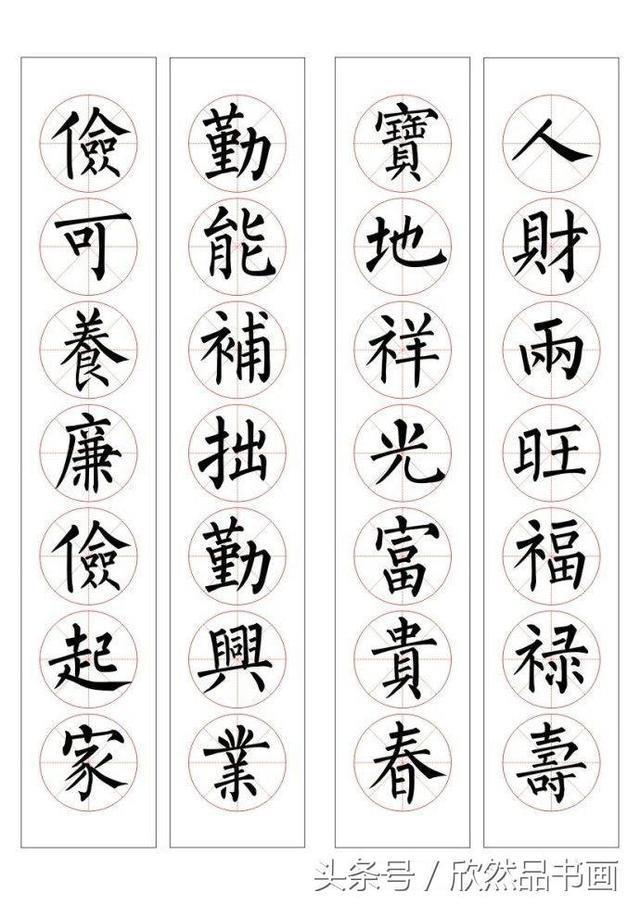 人財兩旺福禄壽
寶地祥光富貴春
勤能補拙勤興業
儉可養廉儉起家
头条号 / 欣然品书画